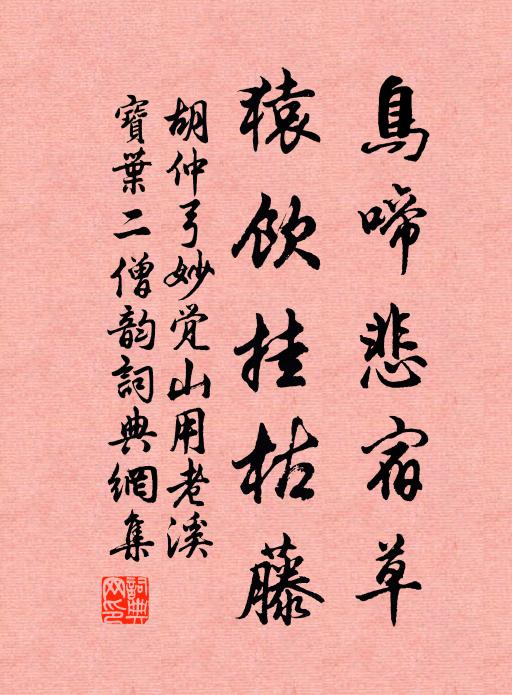 鳥啼悲宿草
猿飲挂枯藤
胡仲弓妙覺山用老溪
寶葉二僧韵詞典網集
詞典網印